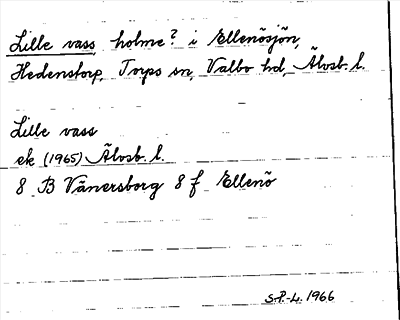 Lille vass, holme? i Ellenösjön,
Hedenstorp, Torps sn, Valbo hd, Älvsb. l.
Lille vass
ek (1965) Älvsb. l.
8 B Vänersborg 8 f Ellenö
S.P.-L. 1966